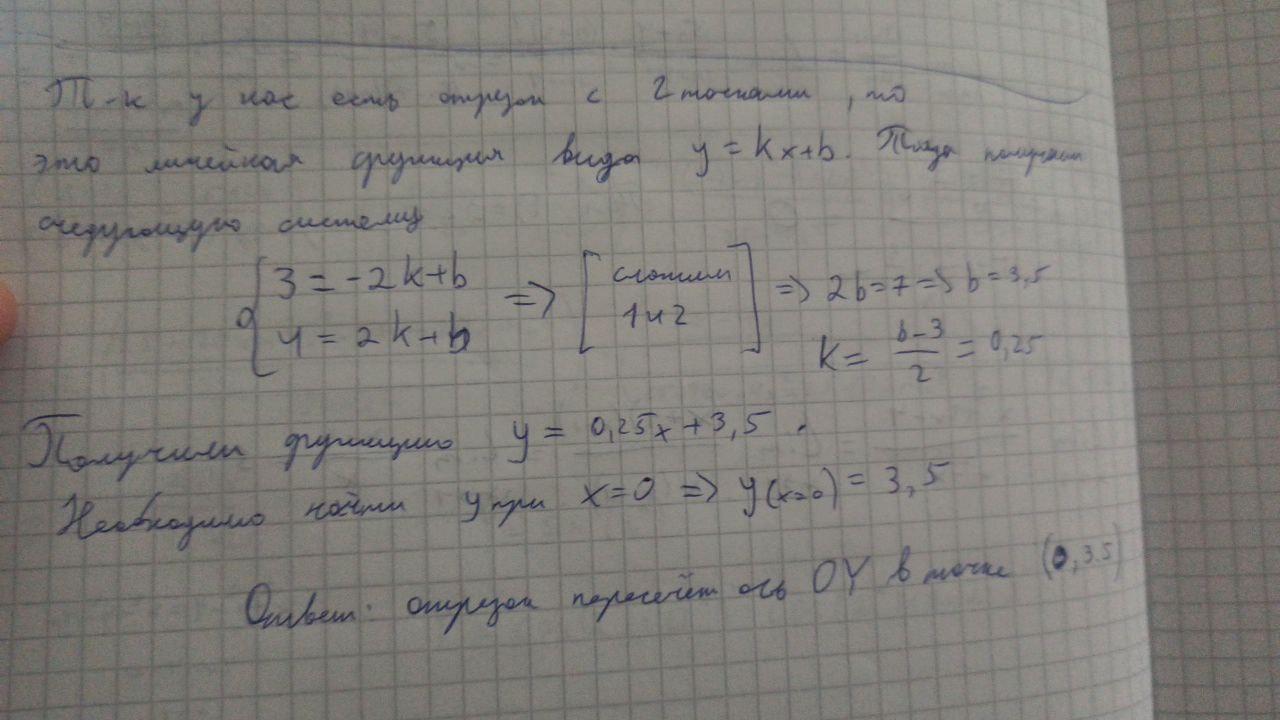 Т-к у нас есть отрезок с 2 точками, то
это линейная функция вида y = kx+b. Тогда получим
следующую систему
{ 3 = -2k+b
4 = 2k+b => [ сложим 1 и 2 ] => 2b=7 => b=3,5
k = (b-3)/2 = 0,25
Получили функцию y = 0,25x+3,5.
Необходимо найти y при x=0 => y(x=0) = 3,5
Ответ: отрезок пересечёт ось OY в точке (0, 3.5)